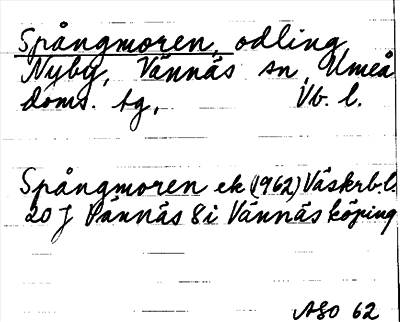 Spångmoren, odling,
Nyby, Vännäs sn, Umeå
doms. tg, Vb. l.
Spångmoren ek (1962) Västerb.l.
20 J Vännäs 8 i Vännäs köping
ASO 62